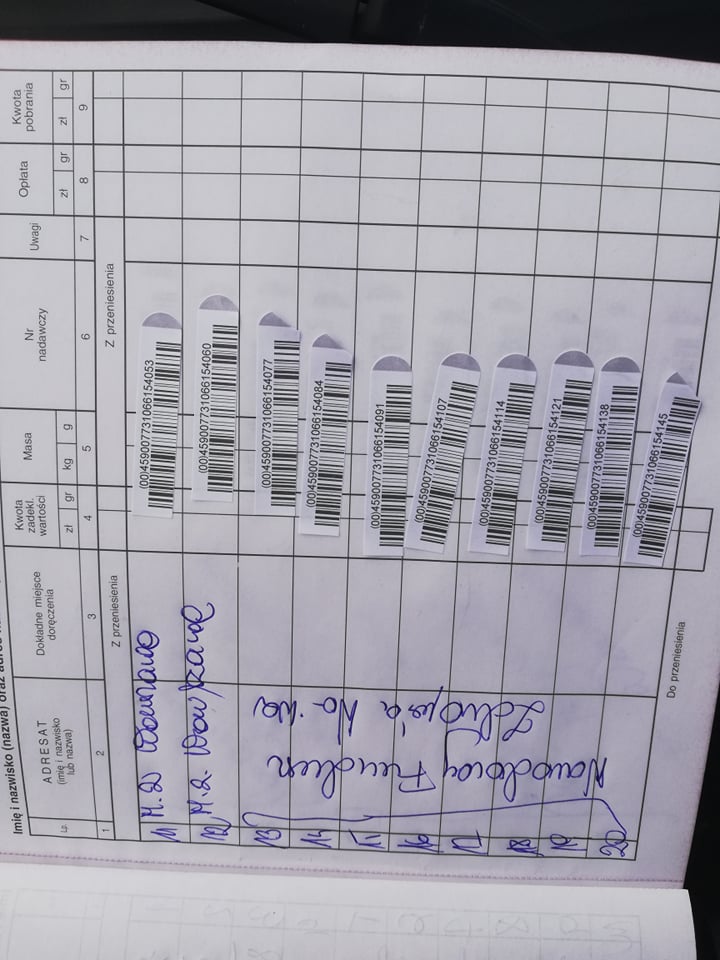 Imię i nazwisko (nazwa) oraz adres
Lp.
ADRESAT
(imię i nazwisko
lub nazwa)
Dokładne miejsce
doręczenia
Kwota
zadekl.
wartości
zł gr
Masa
kg g
Nr
nadawczy
Uwagi
Opłata
zł gr
Kwota
pobrania
zł gr
1 2 3 4 5 6 7 8 9
Z przeniesienia Z przeniesienia
11 (00)459007731066154053
12 (00)459007731066154060
13 (00)459007731066154077
14 (00)459007731066154084
(00)459007731066154091
(00)459007731066154107
(00)459007731066154114
(00)459007731066154121
(00)459007731066154138
20 (00)459007731066154145
Narodowy Fundusz
Zdrowia
Do przeniesienia